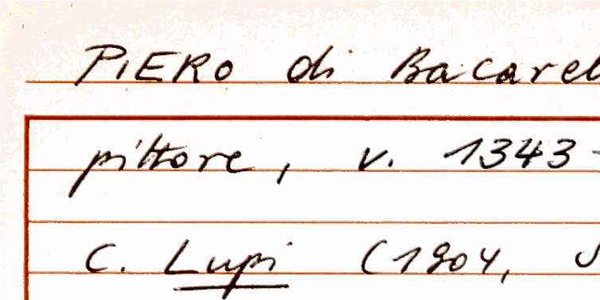 PIERO di Bacarel
pittore, v. 1343-
C. Lupi (1904,